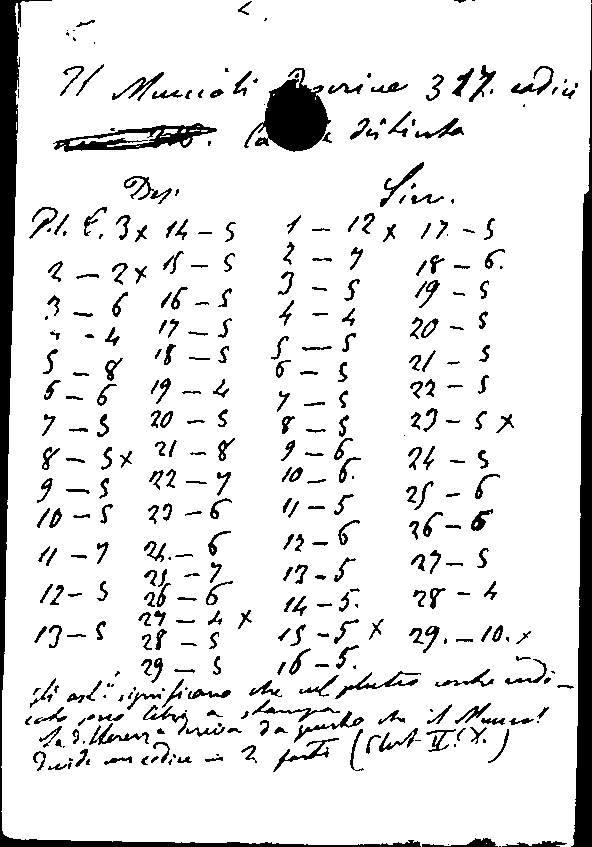 Il Muccioli descrive 317. codici
Ca distinta
Des. Sin.
Pl. 1. 3 x 14 – 5 1 – 12 x 17 – 5
2 – 2 x 15 – 5 2 – 7 18 – 6.
3 – 6 16 – 5 3 – 5 19 – 5
4 – 4 17 – 5 4 – 4 20 – 5
5 – 8 18 – 5 5 – 5 21 – 5
6 – 6 19 – 4 6 – 5 22 – 5
7 – 5 20 – 5 7 – 5 23 – 5 x
8 – 5 x 21 – 8 8 – 5 24 – 5
9 – 5 22 – 7 9 – 6 25 – 6
10 – 5 23 – 6 10 – 6. 26 – 6
11 – 7 24. – 6 11 – 5 27 – 5
12 – 5 25 – 7 12 – 6 28 – 4
13 – 5 26 – 6 13 – 5 29. – 10. x
27 – 4 x 14 – 5.
28 – 5 15 – 5 x
29 – 5 16 – 5.
Gli ast.i significano che nel pluteo contro indi–
cato sono libri a stampa
La differenza deriva da questo che il Muccioli
divide un codice in 2 parti (Plut. II. D. X.)